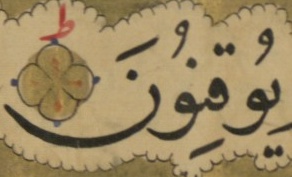 يُوقِنُونَ ط